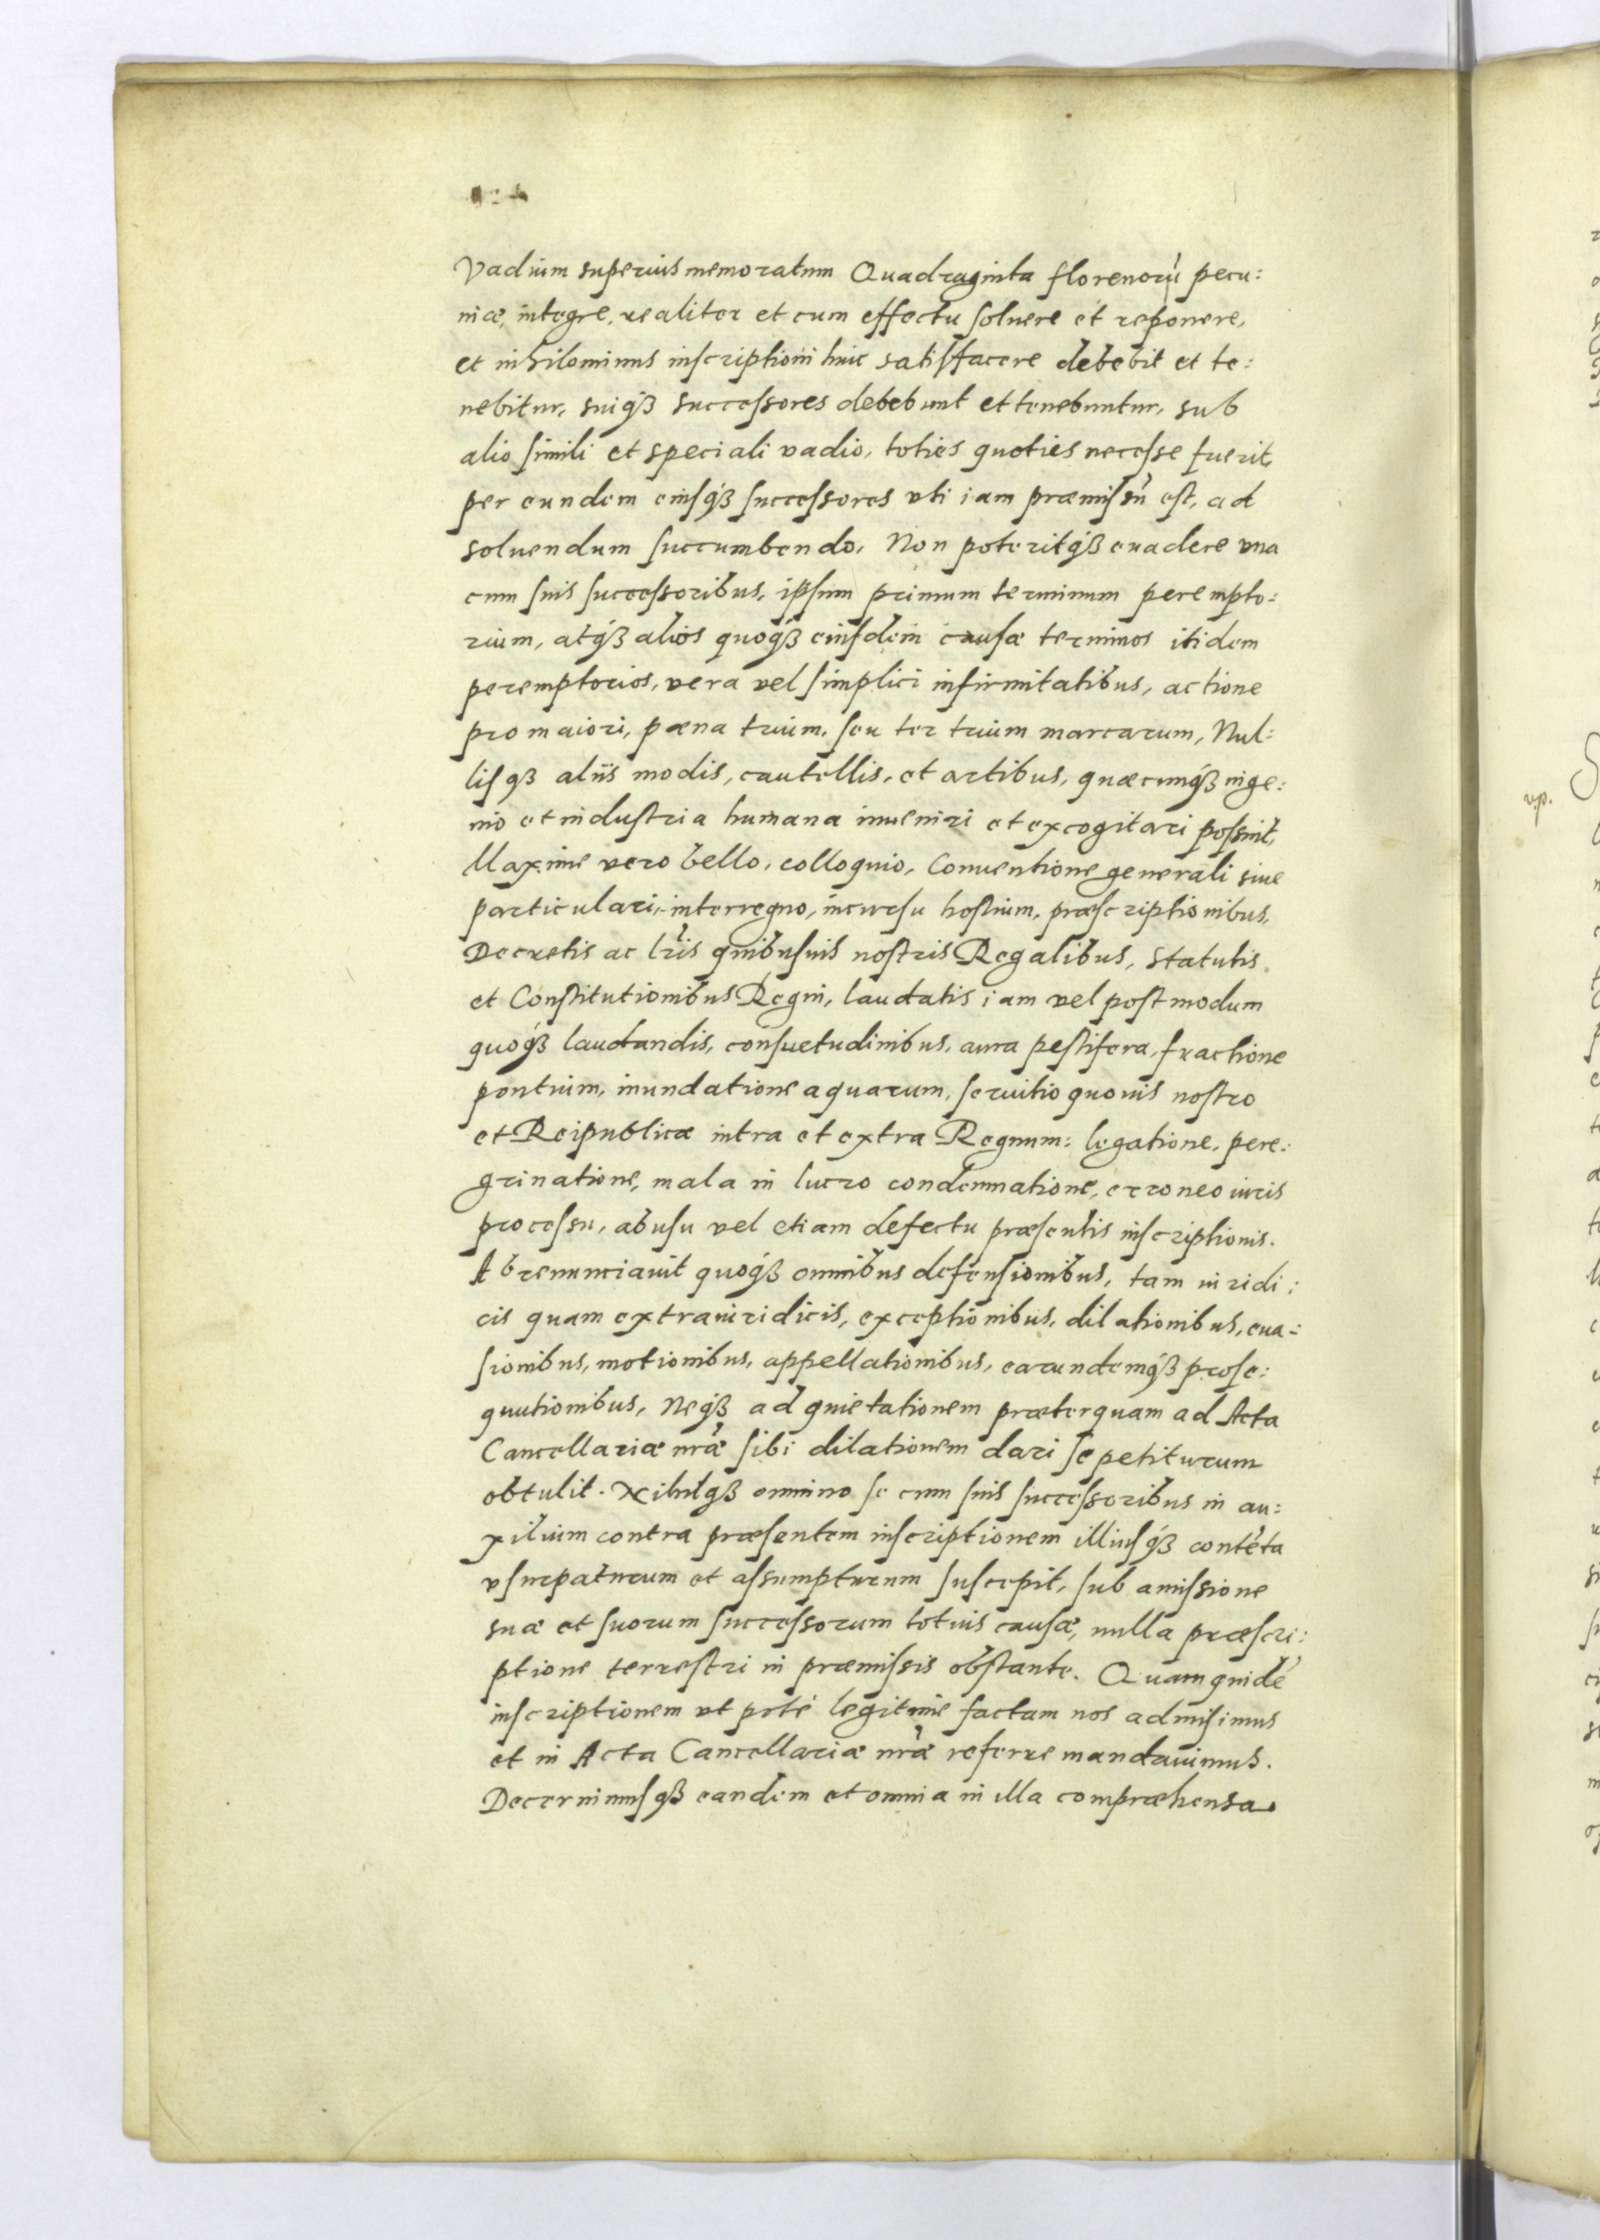 Vadium superius memoratum Quadraginta florenorũ pecu:
niæ, integre, realiter et cum effectu soluere et reponere,
et nihilominus inscriptioni huic satisfacere debebit et te:
nebitur, suiq́ꝫ successores debebunt et tenebuntur, sub
alio simili et speciali vadio, toties quoties necesse fuerit,
per eundem eiusq́ꝫ successores vti iam præmissũ est, ad
soluendum succumbendo, Non poteritq́ꝫ euadere vna
cum suis successoribus, ipsum primum terminum perempto:
rium, atq́ꝫ alios quoq́ꝫ eiusdem causæ terminos itidem
peremptorios, vera vel simplici infirmitatibus, actione
pro maiori, pæna trium, seu ter trium marcarum, Nul:
lisqꝫ aliis modis, cautellis, et artibus, quæcunq́ꝫ inge:
nio et industria humana inueniri et excogitari possint,
Maxime vero bello, colloquio, Conuentione generali siue
particulari, interregno, incursu hostium, præscriptionibus,
Decretis ac lr̃is quibusuis nostris Regalibus, Statutis
et Constitutionibus Regni, laudatis iam vel postmodum
quoq́ꝫ laudandis, consuetudinibus, aura pestifera, fractione
pontium, inundatione aquarum, seruitio quouis nostro
et Reipublicæ intra et extra Regnum: legatione, pere:
grinatione, mala in lucro condemnatione, erroneo iuris
processu, abusu vel etiam defectu præsentis inscriptionis.
Abrenunciauit quoq́ꝫ omnibus defensionibus, tam iuridi:
cis quam extraiuridicis, exceptionibus, dilationibus, eua:
sionibus, motionibus, appellationibus, earundemq́ꝫ prose:
quutionibus, Neq́ꝫ ad quietationem præterquam ad Acta
Cancellariæ nr̃æ sibi dilationem dari se petiturum
obtulit. Nihilq́ꝫ omnino se cum suis successoribus in au:
xilium contra præsentem inscriptionem illiusq́ꝫ contẽta
vsurpaturum et assumpturum suscepit, sub amissione
suæ et suorum successorum totius causæ, nulla præscri:
ptione terrestri in præmissis obstante. Quam quidẽ
inscriptionem vt pote legitime factam nos admisimus
et in Acta Cancellariæ nr̃æ referre mandauimus.
Decernimusqꝫ eandem et omnia in illa compræhensa
vp.